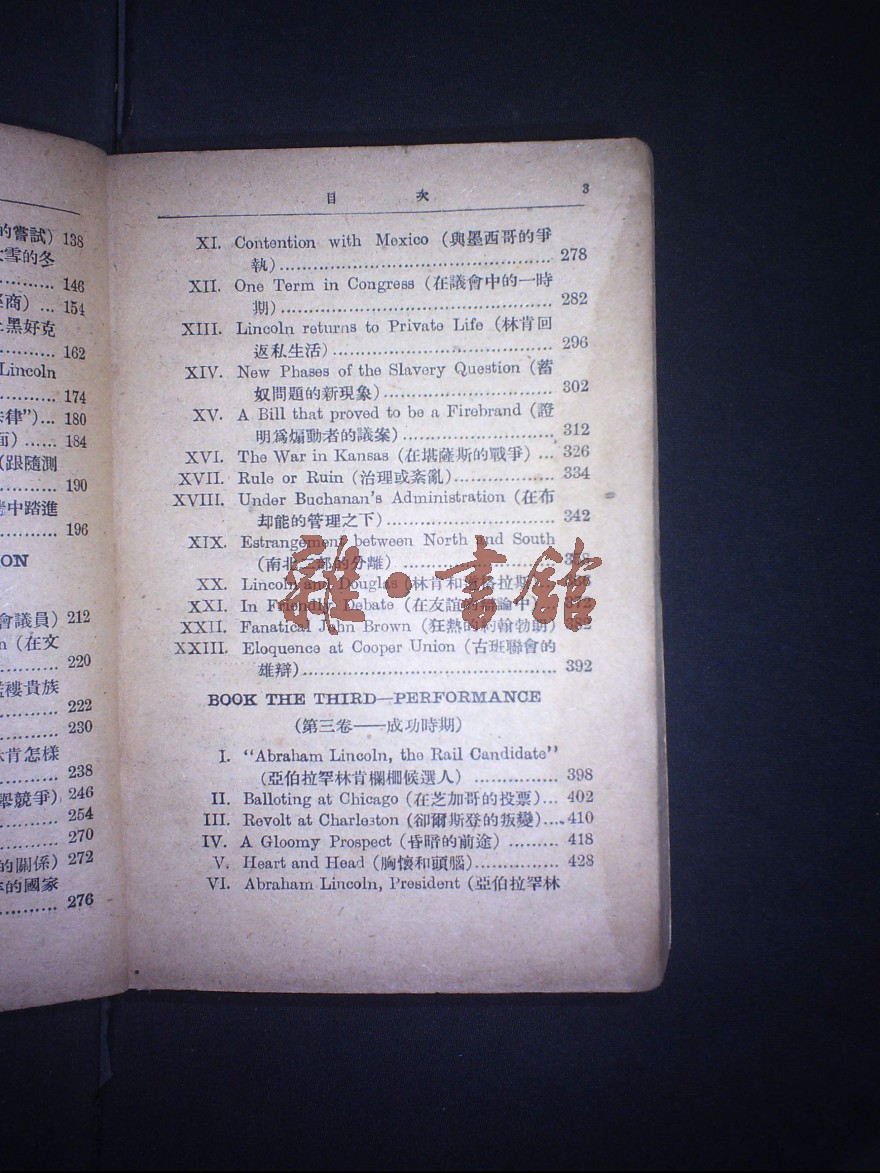 的嘗試) 138
雪的冬
146
商) ... 154
黑好克
162
Lincoln
174
律")... 180
面) ...... 184
(跟隨測
190
中踏進
196
ON
會議員) 212
n (在文
220
褸貴族
222
230
肯怎樣
238
競爭) 246
254
270
的關係) 272
的國家
276
目 次 3
XI. Contention with Mexico (與墨西哥的爭
執) ... 278
XII. One Term in Congress (在議會中的一時
期) ... 282
XIII. Lincoln returns to Private Life (林肯回
返私生活) ... 296
XIV. New Phases of the Slavery Question (蓄
奴問題的新現象) ... 302
XV. A Bill that proved to be a Firebrand (證
明爲煽動者的議案) ... 312
XVI. The War in Kansas (在堪薩斯的戰爭) ... 326
XVII. Rule or Ruin (治理或紊亂) ... 334
XVIII. Under Buchanan's Administration (在布
却能的管理之下) ... 342
XIX. Estrangement between North and South
(南北 部的分離) ...
XX. Lincoln and Douglas (林肯和 格拉斯) ...
XXI. In Friendly Debate (在友誼的 論中) ...
XXII. Fanatical John Brown (狂熱的約翰勃朗)
XXIII. Eloquence at Cooper Union (古班聯會的
雄辯) ... 392
BOOK THE THIRD—PERFORMANCE
(第三卷——成功時期)
I. "Abraham Lincoln, the Rail Candidate"
(亞伯拉罕林肯欄柵候選人) ... 398
II. Balloting at Chicago (在芝加哥的投票) ... 402
III. Revolt at Charleston (卻爾斯登的叛變) ... 410
IV. A Gloomy Prospect (昏暗的前途) ... 418
V. Heart and Head (胸懷和頭腦) ... 428
VI. Abraham Lincoln, President (亞伯拉罕林
雜·書館